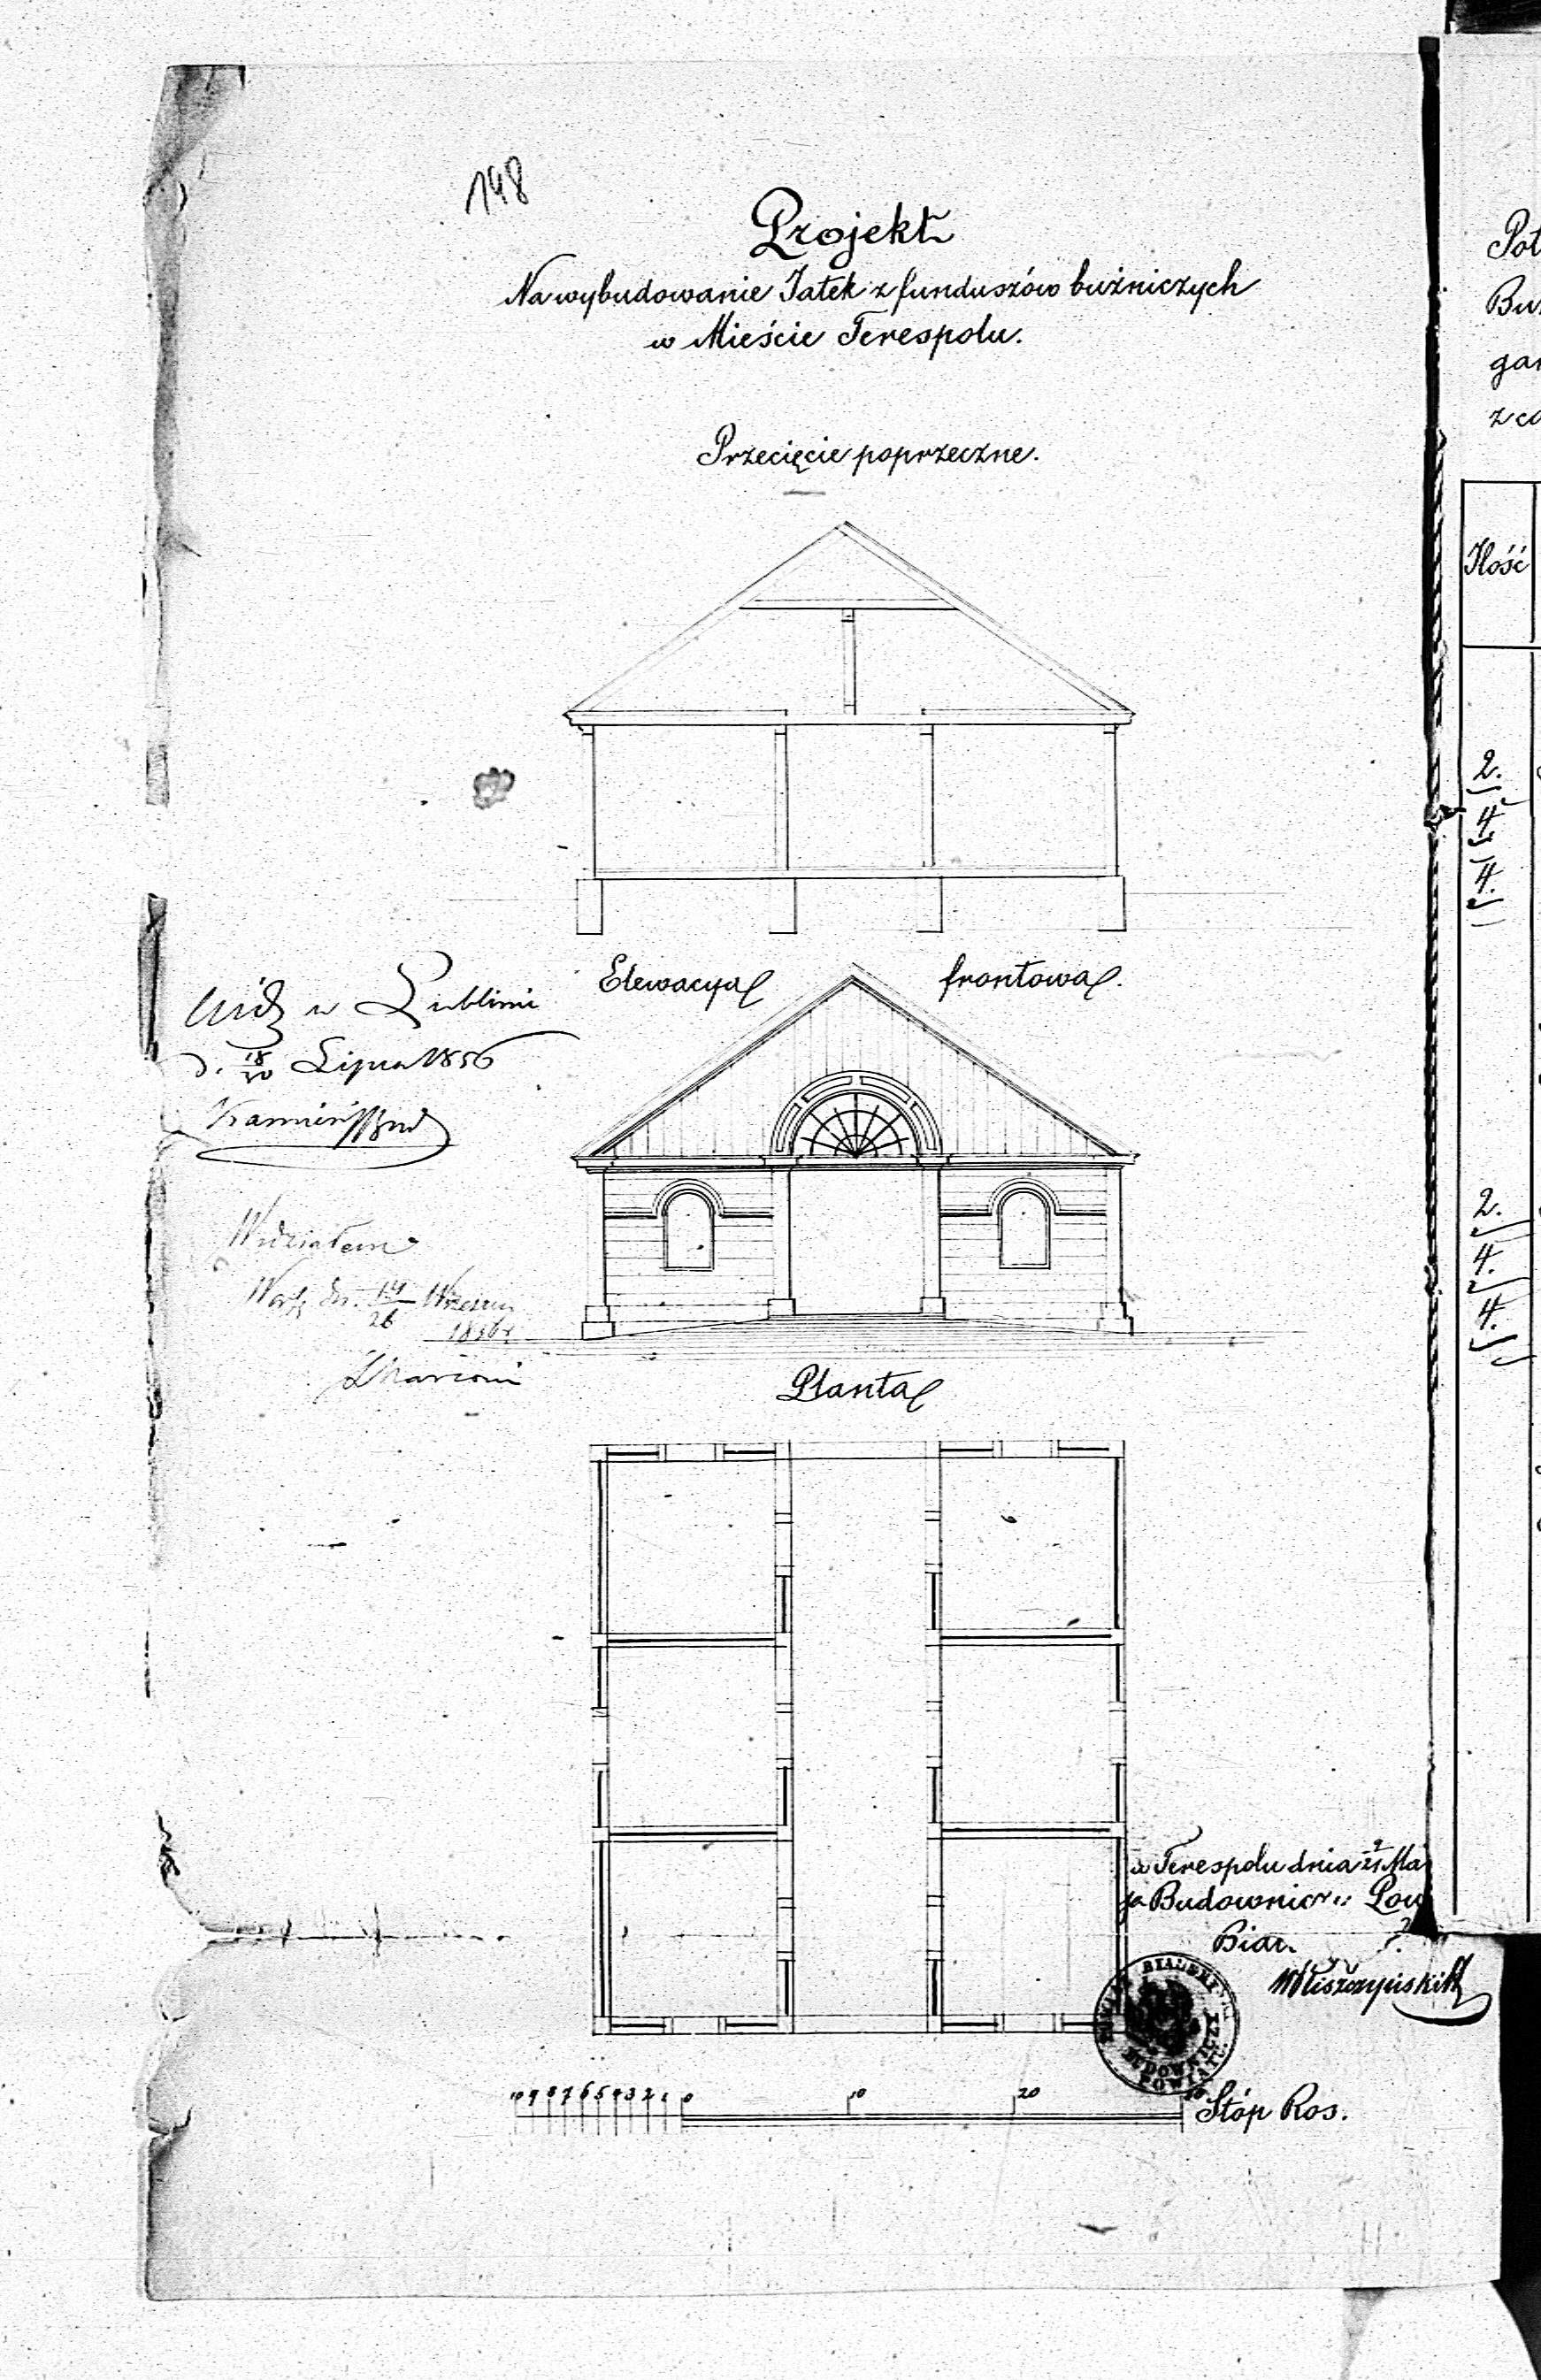 148
Projekt
Na wybudowanie Jatek z funduszów bużniczych
w Mieście Terespolu.
Przecięcie poprzeczne.
Elewacya frontowa.
w Lublinie
d. 18/30 Lipca 1856
Widziałem
dn. 14/26
Planta
w Terespolu dnia Ma
Budowniczy Pow
BIALSKI
BUDOWNICZY
POWIATU
10 9 8 7 6 5 4 3 2 1 0 10 20 30 Stóp Ros.
Pot
Bu
gar
z co
Ilość
2.
4
4.
2.
4.
4.